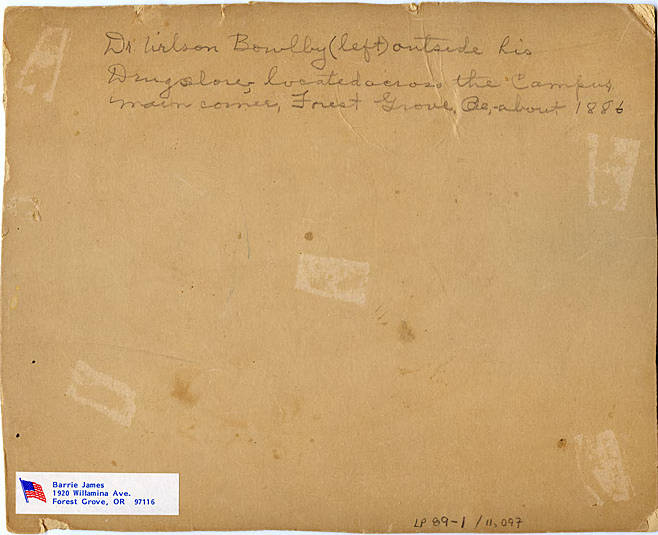 Dr Wilson Bowlby (left) outside his
Drugstore, located across the Campus,
main corner, Forest Grove, Ore, about 1886
Barrie James
1920 Willamina Ave.
Forest Grove, OR 97116
LP 89-1 / 11,097